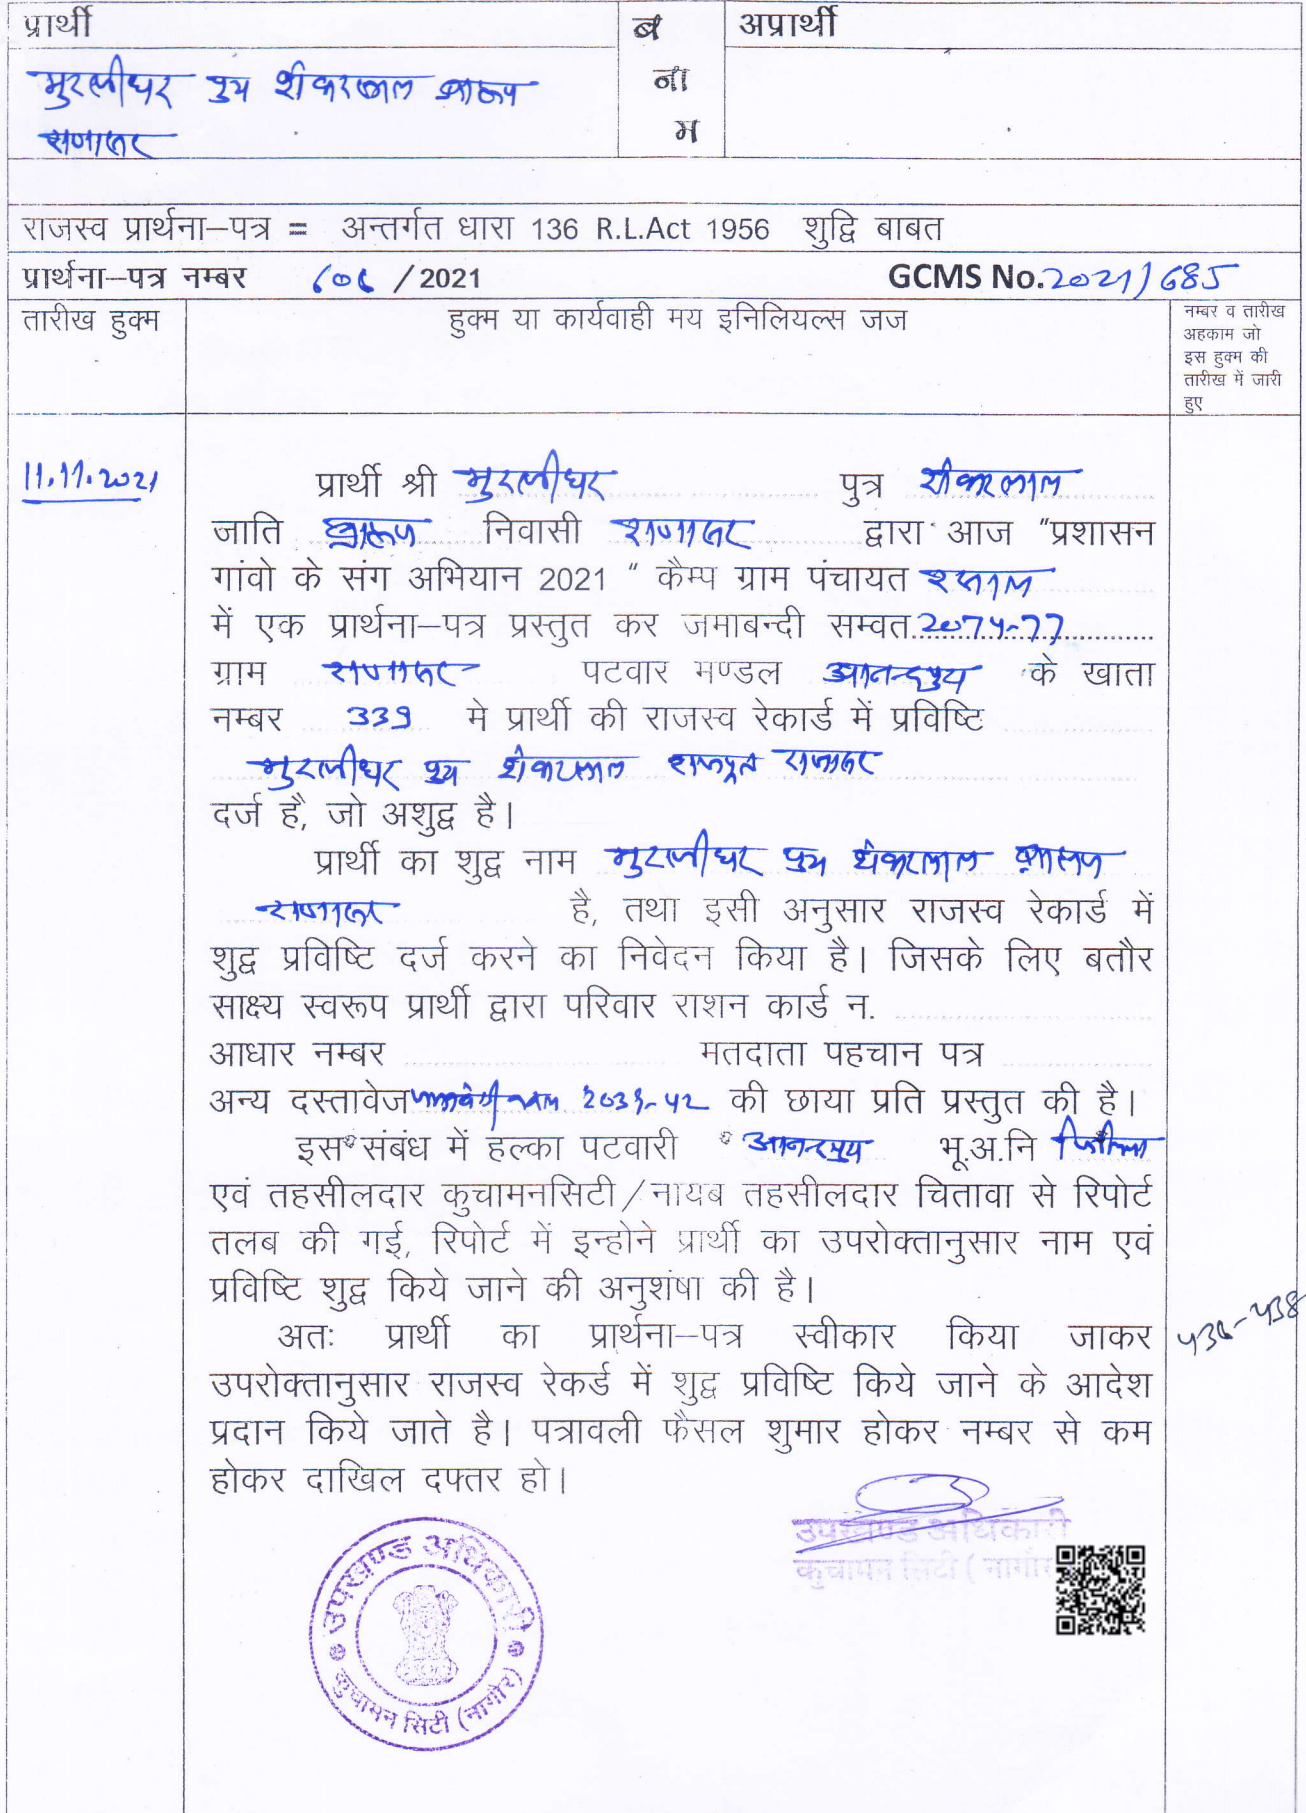 प्रार्थी
ब
ना
म
अप्रार्थी
मुरलीधर पुत्र शंकरलाल ब्राह्मण
राजस्व प्रार्थना–पत्र = अन्तर्गत धारा 136 R.L.Act 1956 शुद्वि बाबत
प्रार्थना–पत्र नम्बर /2021 GCMS No.2021/685
तारीख हुक्म
हुक्म या कार्यवाही मय इनिलियल्स जज
नम्बर व तारीख
अहकाम जो
इस हुक्म की
तारीख में जारी
हुए
11.11.2021
प्रार्थी श्री मुरलीधर पुत्र शंकरलाल
जाति ब्राह्मण निवासी द्वारा आज "प्रशासन
गांवो के संग अभियान 2021 " कैम्प ग्राम पंचायत
में एक प्रार्थना–पत्र प्रस्तुत कर जमाबन्दी सम्वत 2074-77
ग्राम पटवार मण्डल आनन्दपुरा के खाता
नम्बर 339 मे प्रार्थी की राजस्व रेकार्ड में प्रविष्टि
मुरलीधर पुत्र शंकरलाल राजपूत
दर्ज है, जो अशुद्व है।
प्रार्थी का शुद्व नाम मुरलीधर पुत्र शंकरलाल ब्राह्मण
है, तथा इसी अनुसार राजस्व रेकार्ड में
शुद्व प्रविष्टि दर्ज करने का निवेदन किया है। जिसके लिए बतौर
साक्ष्य स्वरूप प्रार्थी द्वारा परिवार राशन कार्ड न.
आधार नम्बर मतदाता पहचान पत्र
अन्य दस्तावेज की छाया प्रति प्रस्तुत की है।
इस संबंध में हल्का पटवारी आनन्दपुरा भू.अ.नि
एवं तहसीलदार कुचामनसिटी/नायब तहसीलदार चितावा से रिपोर्ट
तलब की गई, रिपोर्ट में इन्होने प्रार्थी का उपरोक्तानुसार नाम एवं
प्रविष्टि शुद्व किये जाने की अनुशंषा की है।
अतः प्रार्थी का प्रार्थना–पत्र स्वीकार किया जाकर
उपरोक्तानुसार राजस्व रेकर्ड में शुद्व प्रविष्टि किये जाने के आदेश
प्रदान किये जाते है। पत्रावली फैसल शुमार होकर नम्बर से कम
होकर दाखिल दफ्तर हो।
उपखण्ड अधिकारी
कुचामन सिटी ( नागौर
उपखण्ड अधिकारी
कुचामन सिटी (नागौर)